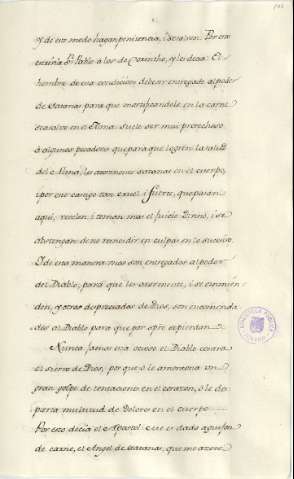 y de este modo hagan penitencia, i se salven. Por esta
escrivia Sn Pablo à los de Corintho, y les decia: El
hombre de esa condicion debe ser entregado al poder
de Satanas para que mortificandole en la carne
se salve en el Alma. Suele ser mui provechoso
à algunos pecadores que para que logren la salud
del Alma, les atormente Satanas en el cuerpo,
i por ese castigo tan cruel i fuerte, que pasan
aqui, recelen i teman mas el Juicio Divino, i se
abstengan de no reincidir en culpas en lo sucesivo.
I de esta manera unos son entregados al poder
del Diablo, para que les atormente, i se enmien-
den, y otros despreciados de Dios, son encomenda
dos al Diablo para que por siempre
Nunca jamas esta ocioso el Diablo contra
el siervo de Dios, porque ò le amontona un
gran golpe de tentaciones en el corazon, ò le des
parra multitud de Dolores en el cuerpo
Por eso decia el Apostol: se me ha dado aguijon
de carne, el Angel de Satanas, que me azote